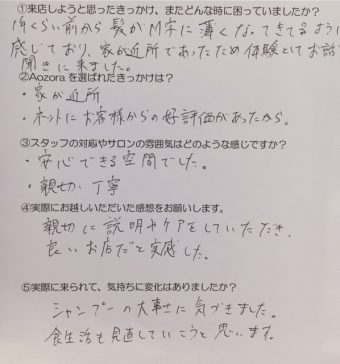 ①来店しようと思ったきっかけ、またどんな時に困っていましたか？
1年くらい前から髪がM字に薄くなってきてるように
感じており、家が近所であったため体験としてお話
聞きに来ました。
②Aozoraを選ばれたきっかけは？
・家が近所
・ネットにお客様からの好評価があったから。
③スタッフの対応やサロンの雰囲気はどのような感じですか？
・安心できる空間でした。
・親切、丁寧
④実際にお越しいただいた感想をお願いします。
親切に説明やケアをしていただき、
良いお店だと実感した。
⑤実際に来られて、気持ちに変化はありましたか？
シャンプーの大事さに気づきました。
食生活も見直していこうと思います。